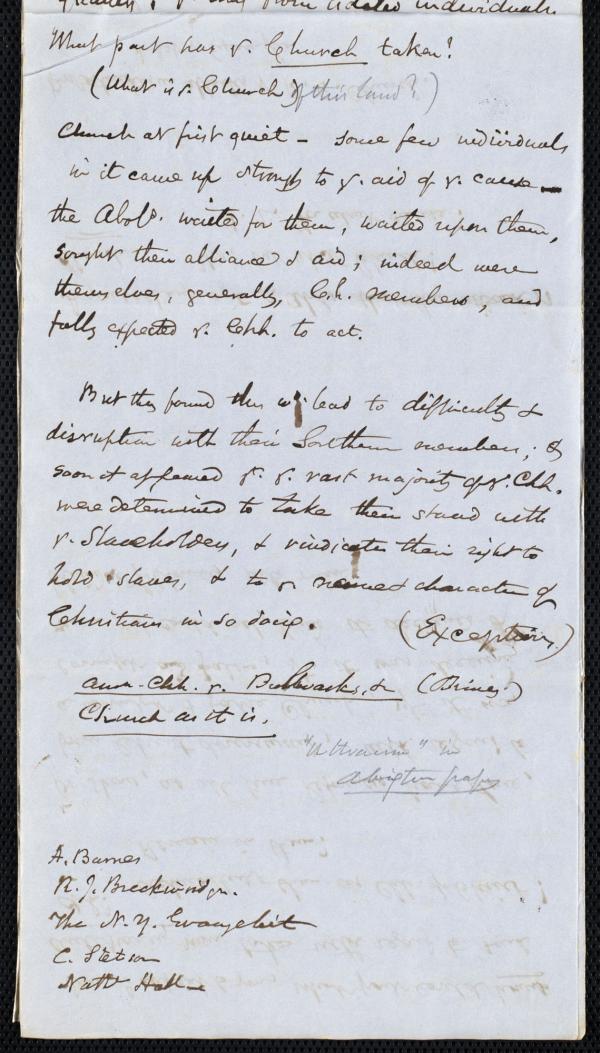 individuals
What part has y. Church taken?
(What is y. Church) of this land?)
Church at first quiet – some few individuals
in it came up strongly to y. aid of y. cause –
the Abolts. waited for them, waited upon them,
sought their alliance & aid; indeed were
themselves, generally, Ch. members, and
fully expected y. Chh. to act.
But they found this wd. lead to difficulty &
disruption with their Southern members; &
soon it appeared yt. y. vast majority of y. Chh.
were determined to take their stand with
y. Slaveholders, & vindicate their right to
hold slaves, & to y. name & character of
Christians in so doing. (Exceptions.)
Amn. Chh. y. Bulwarks, &c (Birney)
Church as it is.
in
Abington paper
A. Barnes
R. J. Breckinridge.
The N. Y. Evangelist
C. Stetson
Nathl Hall